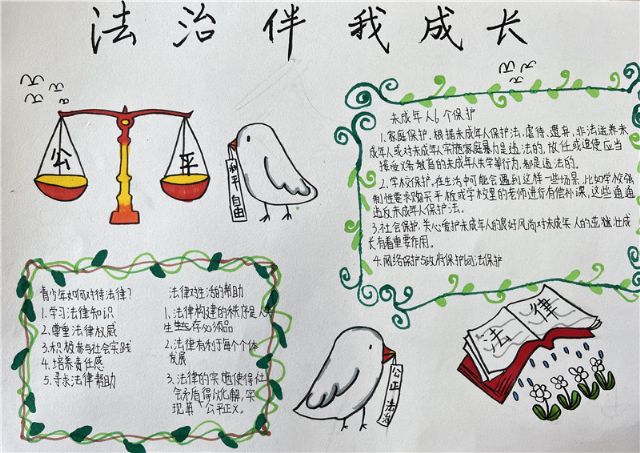 法治伴我成长
公 平
和平自由
未成年人6个保护
1.家庭保护,根据未成年人保护法,虐待、遗弃、非法送养未
成年人或对未成年人实施家庭暴力是违法的,放任或迫使应当
接受义务教育的未成年人失学等行为,都是违法的。
2.学校保护,在生活中可能会遇到这样一些场景,比如学校强
制性要求购买平板或学校里的老师进行有偿补课,这些通通
违反未成年人保护法。
3.社会保护,关心爱护未成年人的良好风尚对未成年人的茁壮成
长有着重要作用。
4.网络保护5政府保护6司法保护
青少年如何对待法律?
1.学习法律知识
2.尊重法律权威
3.积极参与社会实践
4.培养责任感
5.寻求法律帮助
法律对生活的帮助
1.法律构建的秩序是人
生生存必须品
2.法律有利于每个个体
发展
3.法律的实施使得社
会矛盾得以化解,实
现真“公平正义。
公正法治
法律